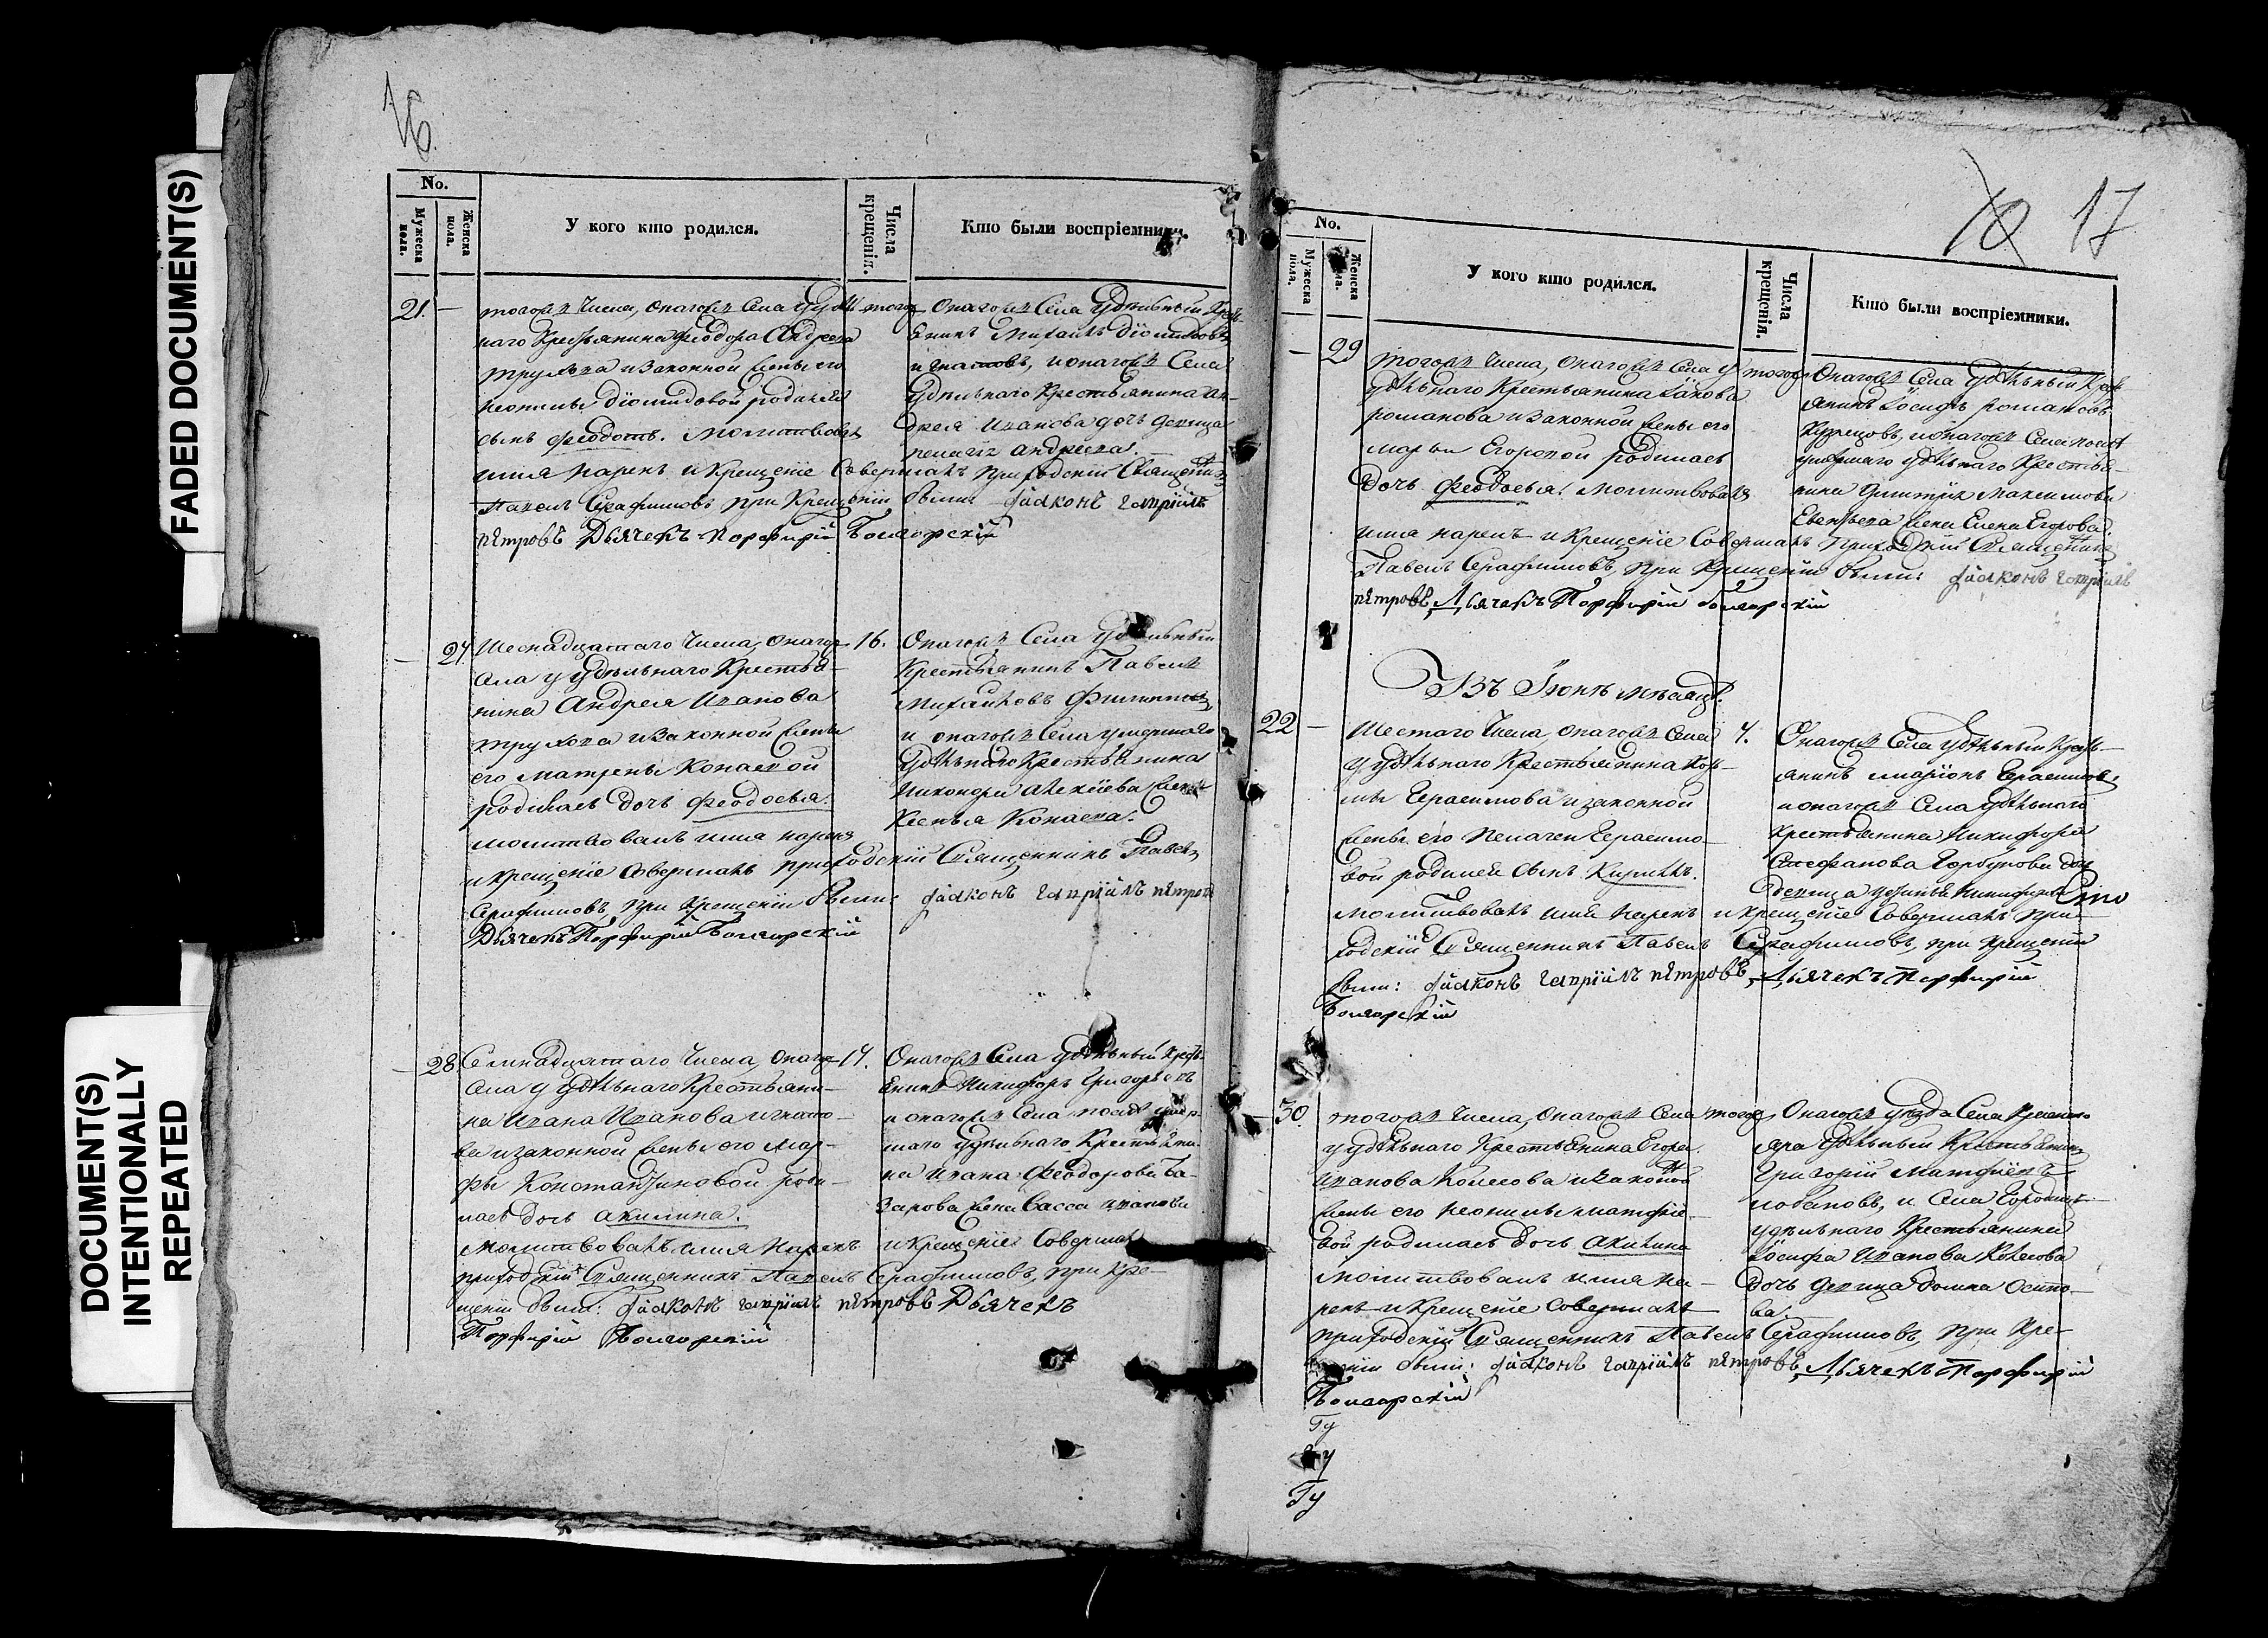 FADED DOCUMENT(S)
DOCUMENT(S)
INTENTIONALLY
REPEATED
16.
No.
Мужеска пола.
Женска пола.
У кого кто родился.
Числа крещенія.
Кто были воспріемники.
21. —
тогожъ числа, онагожъ села у удѣль
наго крестьянина Феодора Андреева
Трухова и законной жены его
Неонилы Діомидовой родился
сынъ Феодотъ. Молитвовалъ
имя нарекъ и крещеніе
Павелъ Серафимовъ при крещеніи
пѣтровъ Дьячекъ Порфирій
того
Онагожъ села удѣльный крест
янинъ Михаилъ Діомидовъ
Игнатовъ, и онагожъ села
удѣльнаго крестьянина Ан-
дрея Иванова дочь девица
Пелагія Андреева.
совершалъ приходскій священникъ
были діаконъ гавріилъ
Болгарскій
— 27.
Шеснадцатаго числа, онагожъ
села у удѣльнаго крестья-
нина Андрея Иванова
Трухова и законной жены
его Матрены Конаевой
родилась дочь Феодосья.
молитвовалъ имя нарекъ
и крещеніе совершалъ приходскій священникъ Павелъ
Серафимовъ, при крещеніи были: діаконъ гавріилъ пѣтровъ
Дьячекъ Порфирій Болгарскій
16.
Онагожъ села удѣльный
крестьянинъ Павелъ
Михайловъ Филипповъ
и онагожъ села умершаго
удѣльнаго крестьянина
Никонора Алексіева жена
Ксенья Конаева.
— 28.
Семнадцатаго числа, онагожъ
села у удѣльнаго крестьяни-
на Ивана Иванова Игнато-
ва и законной жены его Мар-
фы Константиновой роди-
лась дочь Акилина.
Молитвовалъ имя нарекъ и крещеніе совершалъ
приходскій священникъ Павелъ Серафимовъ, при кре-
щеніи были: діаконъ гавріилъ пѣтровъ Дьячекъ
Порфирій Болгарскій
17.
Онагожъ села удѣльный крест-
янинъ Никифоръ Григорьевъ
и онагожъ села послѣ умер-
шаго удѣльнаго крестьяни-
на Ивана Феодорова Ба-
зарова жена Васса Иванова
10 17
No.
Мужеска пола.
Женска пола.
У кого кто родился.
Числа крещенія.
Кто были воспріемники.
— 29
тогожъ числа, онагожъ села у
удѣльнаго крестьянина Іакова
Романова и законной жены его
Марьи Егоровой родилась
дочь Феодосья. молитвовалъ
имя нарекъ и крещеніе совершалъ приходскій священникъ
Павелъ Серафимовъ, при крещеніи были: діаконъ гавріилъ
пѣтровъ, Дьячекъ Порфирій Болгарскій
того
Онагожъ села удѣльный крест
янинъ Іосифъ Романовъ
Кузнецовъ, и онагожъ села послѣ
умершаго удѣльнаго крестья-
нина Димитрія Максимова
жена Елена Егорова.
Въ Іюнѣ мѣсяцѣ.
22 —
Шестаго числа, онагожъ села
у удѣльнаго крестьянина Коз-
мы Герасимова и законной
жены его Пелагеи Герасимо-
вой родился сынъ Кирилъ.
Молитвовалъ имя нарекъ и крещеніе совершалъ при-
ходскій священникъ Павелъ Серафимовъ, при крещеніи
были: діаконъ гавріилъ пѣтровъ, Дьячекъ Порфирій
Болгарскій
7.
Онагожъ села удѣльный крест-
янинъ Иларіонъ Герасимовъ
и онагожъ села удѣльнаго
крестьянина Никифора
Стефанова Горбунова дочь
девица Никифорова
— 30.
тогожъ числа, онагожъ села
у удѣльнаго крестьянина Егора
Иванова Колесова и законной
жены его Неонилы Матфѣе-
вой родилась дочь Акилина
молитвовалъ имя на-
рекъ и крещеніе совершалъ
приходскій священникъ Павелъ Серафимовъ, при кре-
щеніи были: діаконъ гавріилъ пѣтровъ, Дьячекъ Порфирій
Болгарскій
того
Онагожъ уѣзда села
яра удѣльный крестьянинъ
Григорій Матфѣевъ
Лобановъ, и села
удѣльнаго крестьянина
Іосифа Иванова Колесова
дочь девица Домна Осипо-
ва.
Ту
Ту